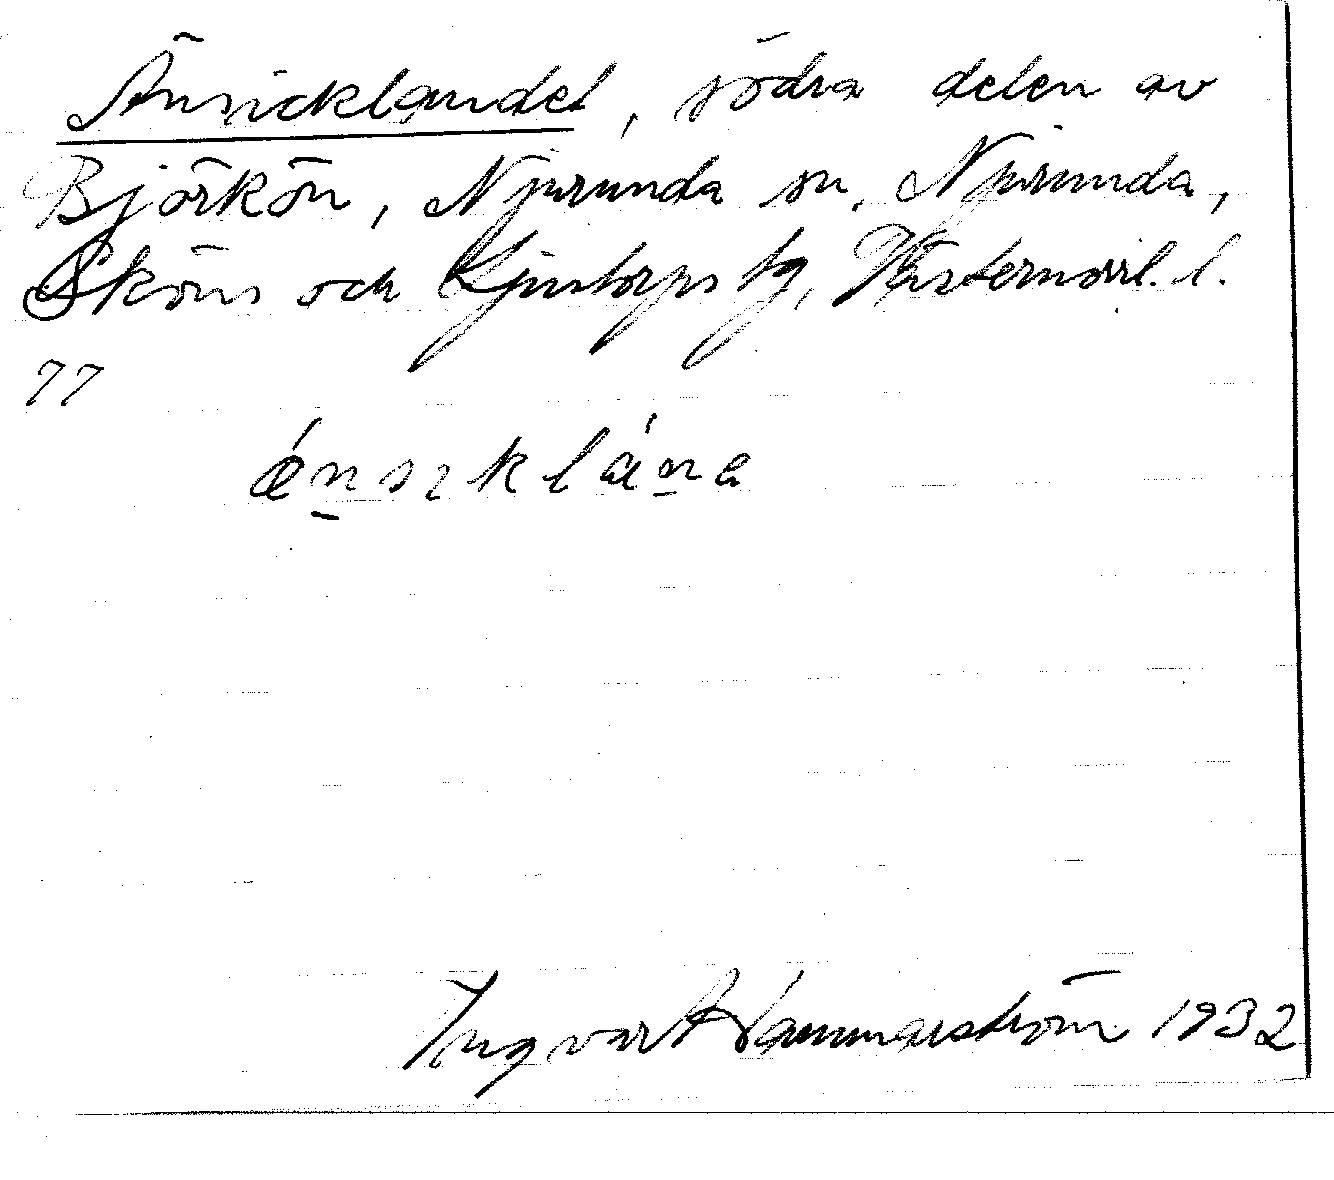 Änsicklandet, södra delen av
Björkön, Njurunda sn, Njurunda,
Sköns och Ljustorps tg, Västernorrl. l.
77
Ingvar Hammarström 1932